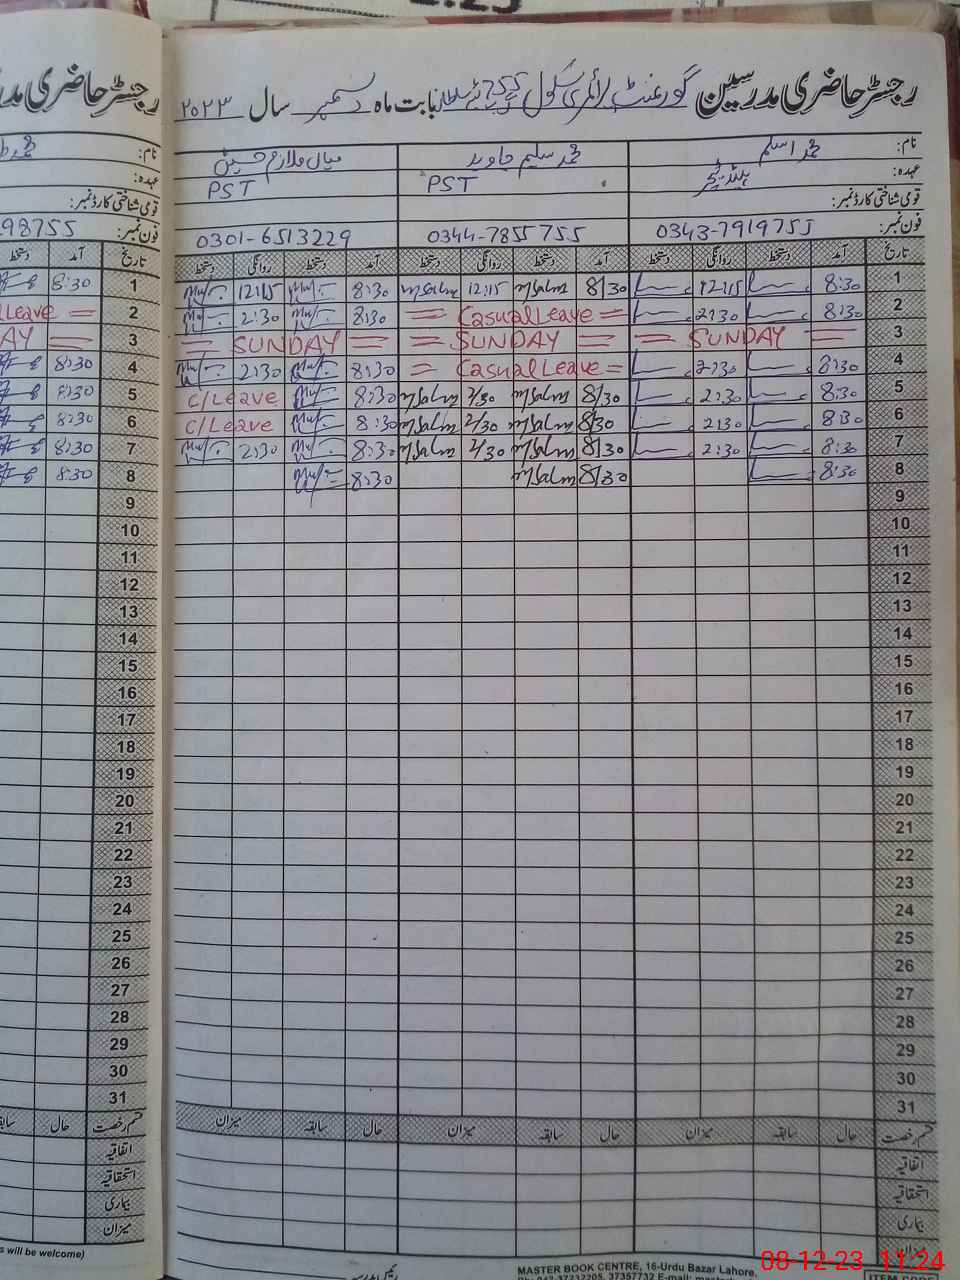 رجسٹر حاضری مدرسین گورنمنٹ پرائمری سکول بابت ماہ دسمبر سال ۲۰۲۳
نام: محمد اسلم محمد سلیم جاوید میاں ملازم حسین
عہدہ: ہیڈ ٹیچر PST PST
قومی شناختی کارڈ نمبر:
فون نمبر: 0343-7919755 0344-7855755 0301-6513229
تاریخ آمد دستخط روانگی دستخط آمد دستخط روانگی دستخط آمد دستخط روانگی دستخط
1 8:30 12:15 8/30 mSalm 12:15 mSalm 8:30 12:15
2 8:30 2:30 = Casual Leave = 8:30 2:30
3 = SUNDAY = = SUNDAY = = SUNDAY =
4 8:30 2:30 = Casual Leave = 8:30 2:30
5 8:30 2:30 8/30 mSalm 2/30 mSalm 8:30 C/Leave
6 8:30 2:30 8/30 mSalm 2/30 mSalm 8:30 C/Leave
7 8:30 2:30 8/30 mSalm 2/30 mSalm 8:30 2:30
8 8:30 8/30 mSalm 8:30
9
10
11
12
13
14
15
16
17
18
19
20
21
22
23
24
25
26
27
28
29
30
31
قسم رخصت حال سابقہ میزان حال سابقہ میزان حال سابقہ میزان
اتفاقیہ
استحقاقیہ
بیماری
میزان
MASTER BOOK CENTRE, 16-Urdu Bazar Lahore.
Ph: 042-37232205, 37357732 E-mail:
رجسٹر حاضری
98755
تاریخ آمد دستخط
1 8:30
2 Leave =
3 AY =
4 8:30
5 8:30
6 8:30
7 8:30
8 8:30
9
10
11
12
13
14
15
16
17
18
19
20
21
22
23
24
25
26
27
28
29
30
31
قسم رخصت حال
اتفاقیہ
استحقاقیہ
بیماری
میزان
s will be welcome)
08-12-23 11:24